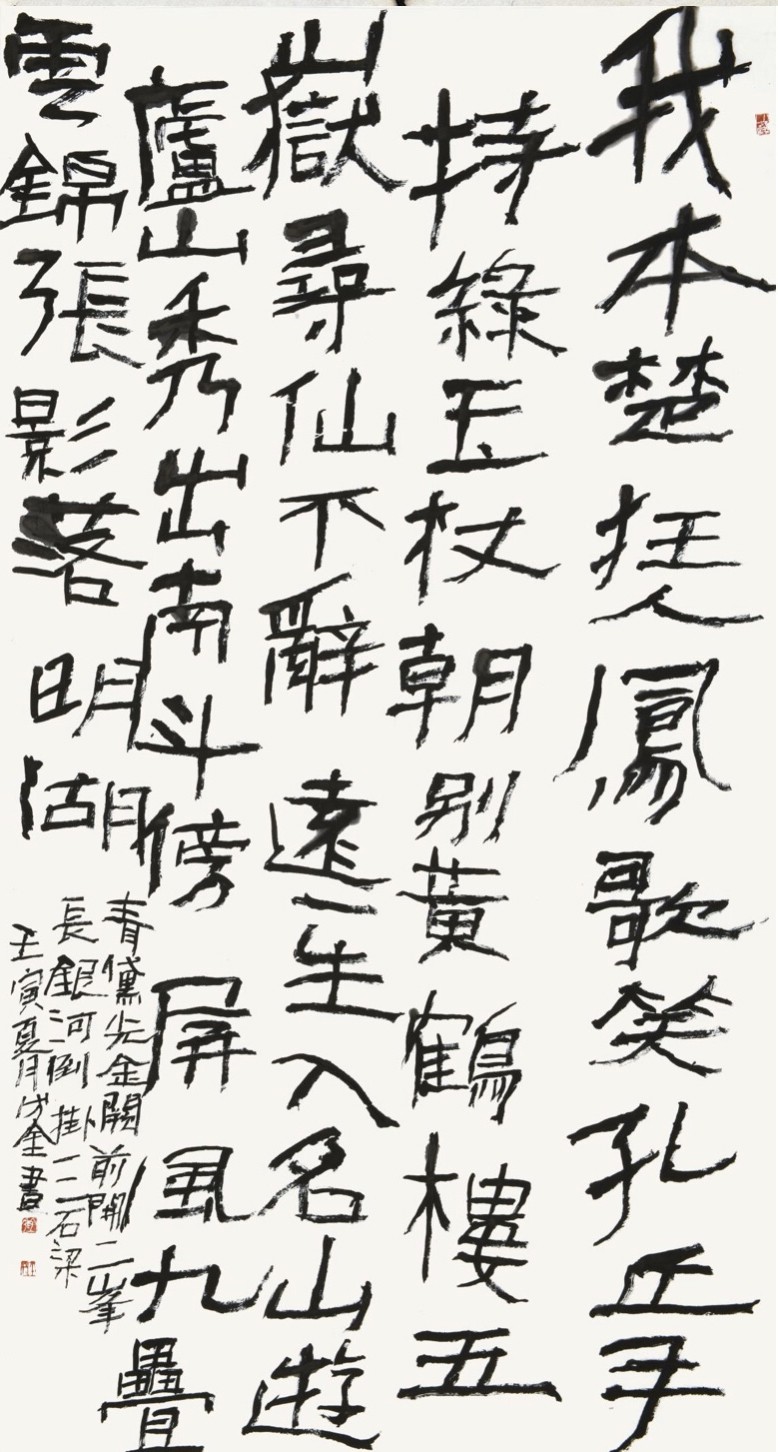 我本楚狂人鳳歌笑孔丘手
持綠玉杖朝別黃鶴樓五
嶽尋仙不辭遠一生入名山遊
廬山秀出南斗傍屏風九疊
雲錦張影落明湖
青黛光金闕前開二峯
長銀河倒掛三石梁
壬寅夏月金書